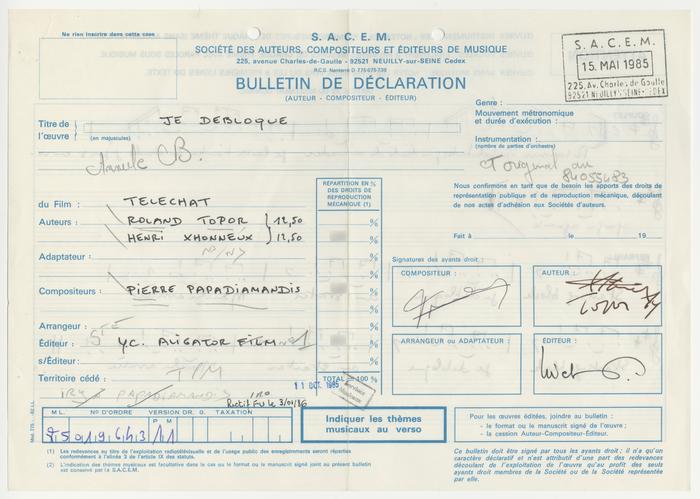 Ne rien inscrire dans cette case
S. A. C. E. M.
SOCIÉTÉ DES AUTEURS, COMPOSITEURS ET ÉDITEURS DE MUSIQUE
225, avenue Charles-de-Gaulle - 92521 NEUILLY-sur-SEINE Cedex
R.C.S. Nanterre D 775 675 739
BULLETIN DE DÉCLARATION
(AUTEUR - COMPOSITEUR - ÉDITEUR)
S. A. C. E. M.
15. MAI 1985
225, Av. Charles de Gaulle
92521 NEUILLY S/SEINE CEDEX
Genre :
Mouvement métronomique
et durée d'exécution :
Instrumentation :
(nombre de parties d'orchestre)
Titre de l'œuvre
(en majuscules)
JE DEBLOQUE
B.
T original au
84055483
Nous confirmons en tant que de besoin les apports des droits de
représentation publique et de reproduction mécanique, découlant
de nos actes d'adhésion aux Sociétés d'auteurs.
Fait à le 19
RÉPARTITION EN %
DES DROITS DE
REPRODUCTION
MÉCANIQUE (1)
du Film : TELECHAT
Auteurs : ROLAND TOPOR 12,50 %
HENRI XHONNEUX 12,50 %
Adaptateur : %
Compositeurs : PIERRE PAPADIAMANDIS %
%
Arrangeur : %
Éditeur : Y.C. ALIGATOR FILM %
s/Éditeur : %
Territoire cédé : TOTAL = 100 %
Signatures des ayants droit :
COMPOSITEUR :
AUTEUR :
Topor
ARRANGEUR ou ADAPTATEUR :
ÉDITEUR :
11 OCT. 1985
PAPADIAMANDIS
Rectif FU le 3/01/86
M L. N° D'ORDRE VERSION DR. G. TAXATION
P M
Indiquer les thèmes
musicaux au verso
Pour les œuvres éditées, joindre au bulletin :
- le format ou le manuscrit signé de l'œuvre ;
- la cession Auteur-Compositeur-Éditeur.
(1) Les redevances au titre de l'exploitation radiotélévisuelle et de l'usage public des enregistrements seront réparties
conformément à l'alinéa 3 de l'article IX des statuts.
(2) L'indication des thèmes musicaux est facultative dans le cas où le format ou le manuscrit signé joint au présent bulletin
est conservé par la S.A.C.E.M.
Ce bulletin doit être signé par tous les ayants droit ; il n'a qu'un
caractère déclaratif et n'est attributif d'une part des redevances
découlant de l'exploitation de l'œuvre qu'au profit des seuls
ayants droit membres de la Société ou d'une Société représentée
par elle.